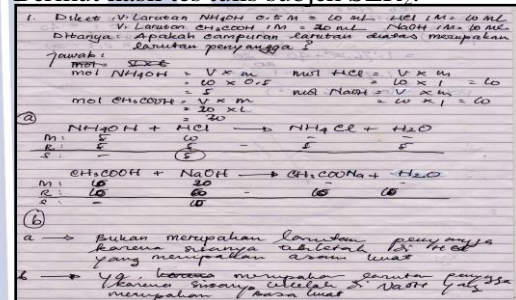 1. Diket : V. Larutan NH4OH 0.5 M = 10 mL HCl 1M = 10 mL
V. Larutan CH3COOH 1M = 20 mL NaOH 1M = 10 mL
Ditanya : Apakah campuran larutan diatas merupakan
larutan penyangga ?
Jawab :
mol NH4OH = V x M mol HCl = V x M
= 10 x 0.5 = 10 x 1 = 10
= 5 mol NaOH = V x M
mol CH3COOH = V x M = 10 x 1 = 10
= 20 x 1
= 20
(a)
NH4OH + HCl → NH4Cl + H2O
M : 5 10 - -
R : 5 5 - 5 5
S : - (5)
CH3COOH + NaOH → CH3COONa + H2O
M : 10 20
R : 10 10 - 10 10
S - 10
(b)
a → Bukan merupakan larutan penyangga
karena sisanya terletak di HCl
yang merupakan asam kuat
b → Ya, merupakan larutan penyangga
karena sisanya terletak di NaOH yang
merupakan basa kuat